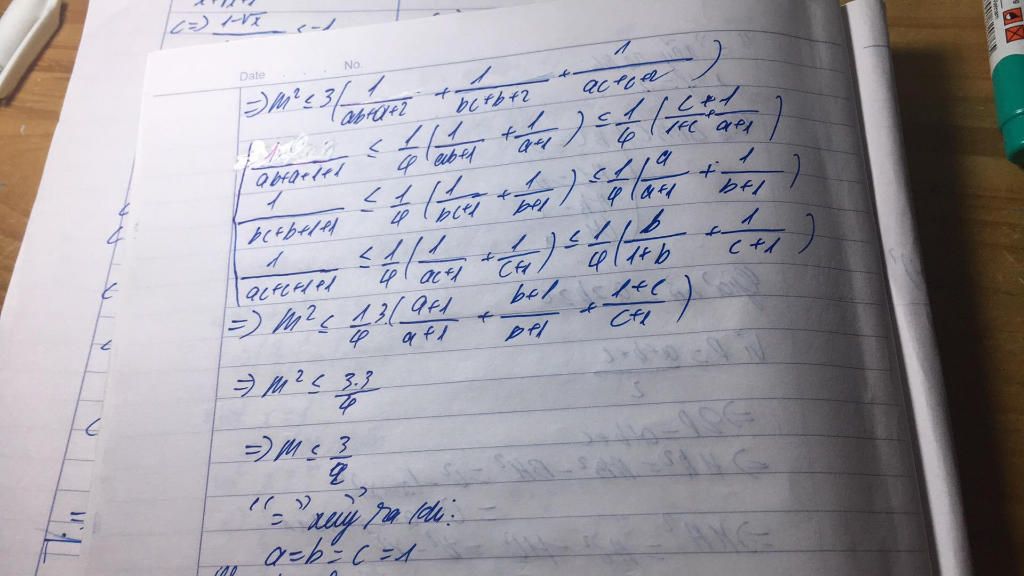 <=> (1-√x)/ < -1
Date No.
=> M² ≤ 3(1/(ab+a+2) + 1/(bc+b+2) + 1/(ac+c+2))
1/(ab+a+1+1) ≤ 1/4(1/(ab+1) + 1/(a+1)) ≤ 1/4(c/(1+c) + 1/(a+1))
1/(bc+b+1+1) ≤ 1/4(1/(bc+1) + 1/(b+1)) ≤ 1/4(a/(a+1) + 1/(b+1))
1/(ac+c+1+1) ≤ 1/4(1/(ac+1) + 1/(c+1)) ≤ 1/4(b/(1+b) + 1/(c+1))
=> M² ≤ 1/4 3((a+1)/(a+1) + (b+1)/(b+1) + (1+c)/(c+1))
=> M² ≤ 3.3/4
=> M ≤ 3/2
"=" xảy ra khi:
a=b=c=1